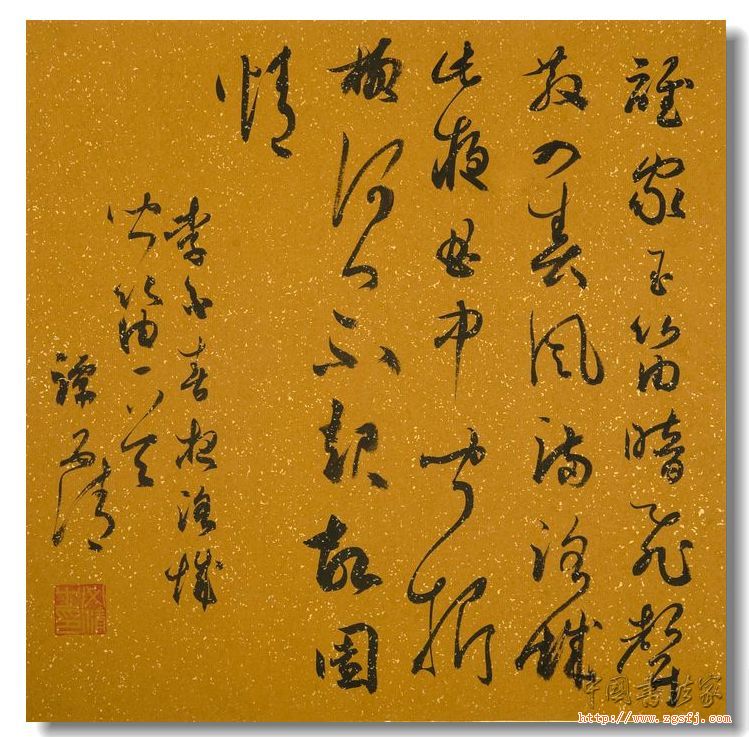 誰家玉笛暗飛聲
散入春風滿洛城
此夜曲中聞折
柳何人不起故園
情
李白春夜洛城
聞笛一首
清
中國書法家
http://www.zgsfj.com/